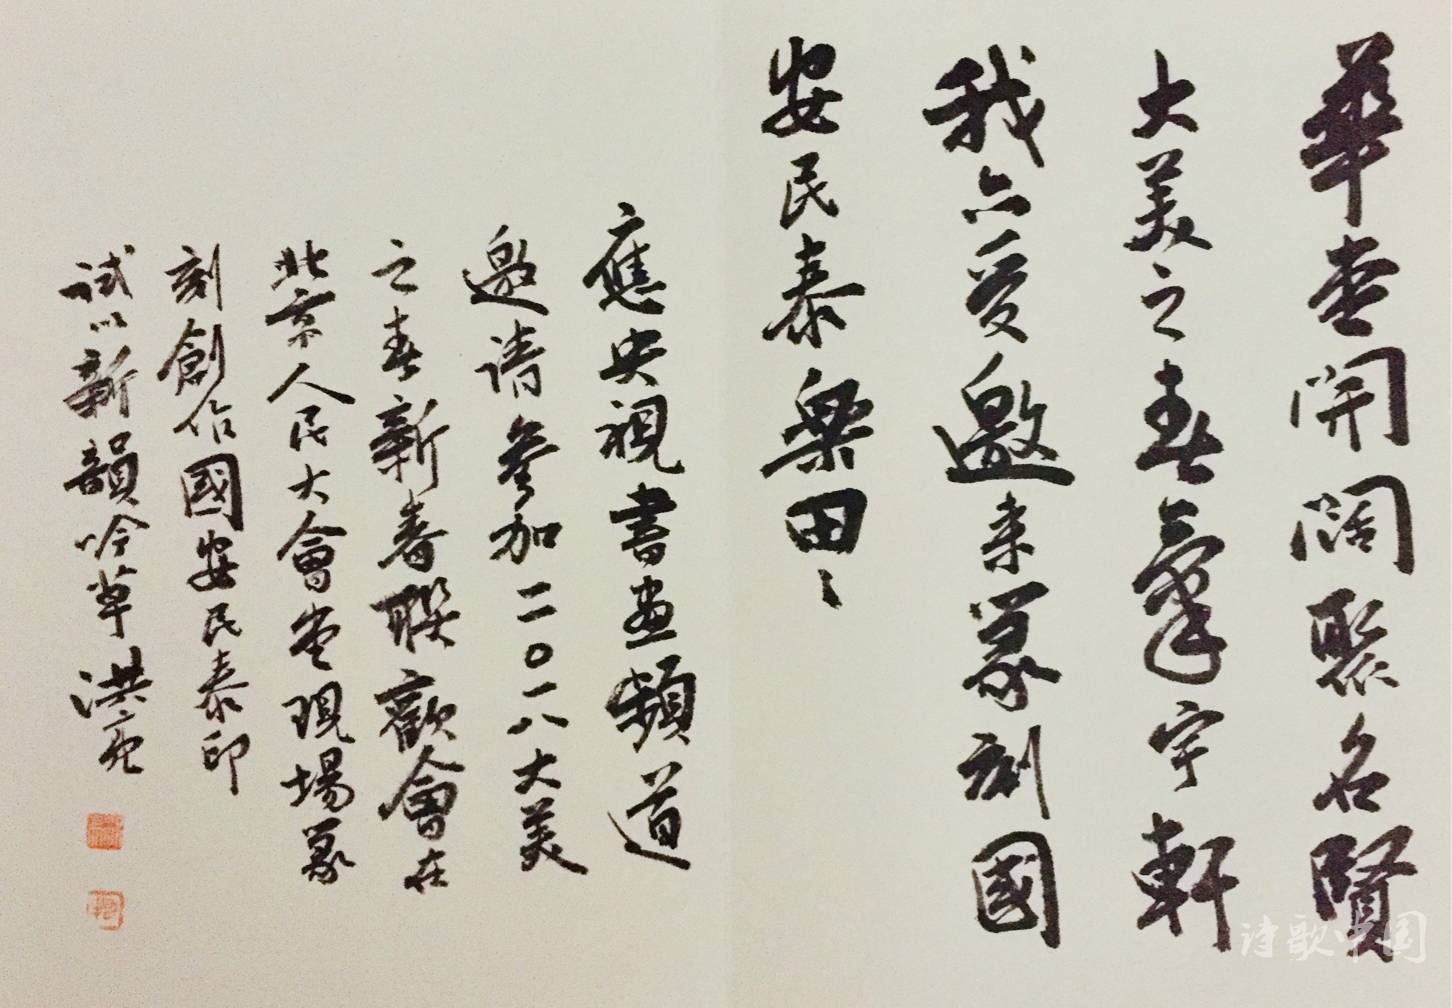 華堂開闊聚名賢
大美之春氣宇軒
我亦受邀来篆刻國
安民泰樂田〻
應央視書畫頻道
邀請參加二〇一八大美
之春新春聯歡會在
北京人民大會堂現場篆
刻創作國安民泰印
試以新韻吟草洪亮
诗歌中国